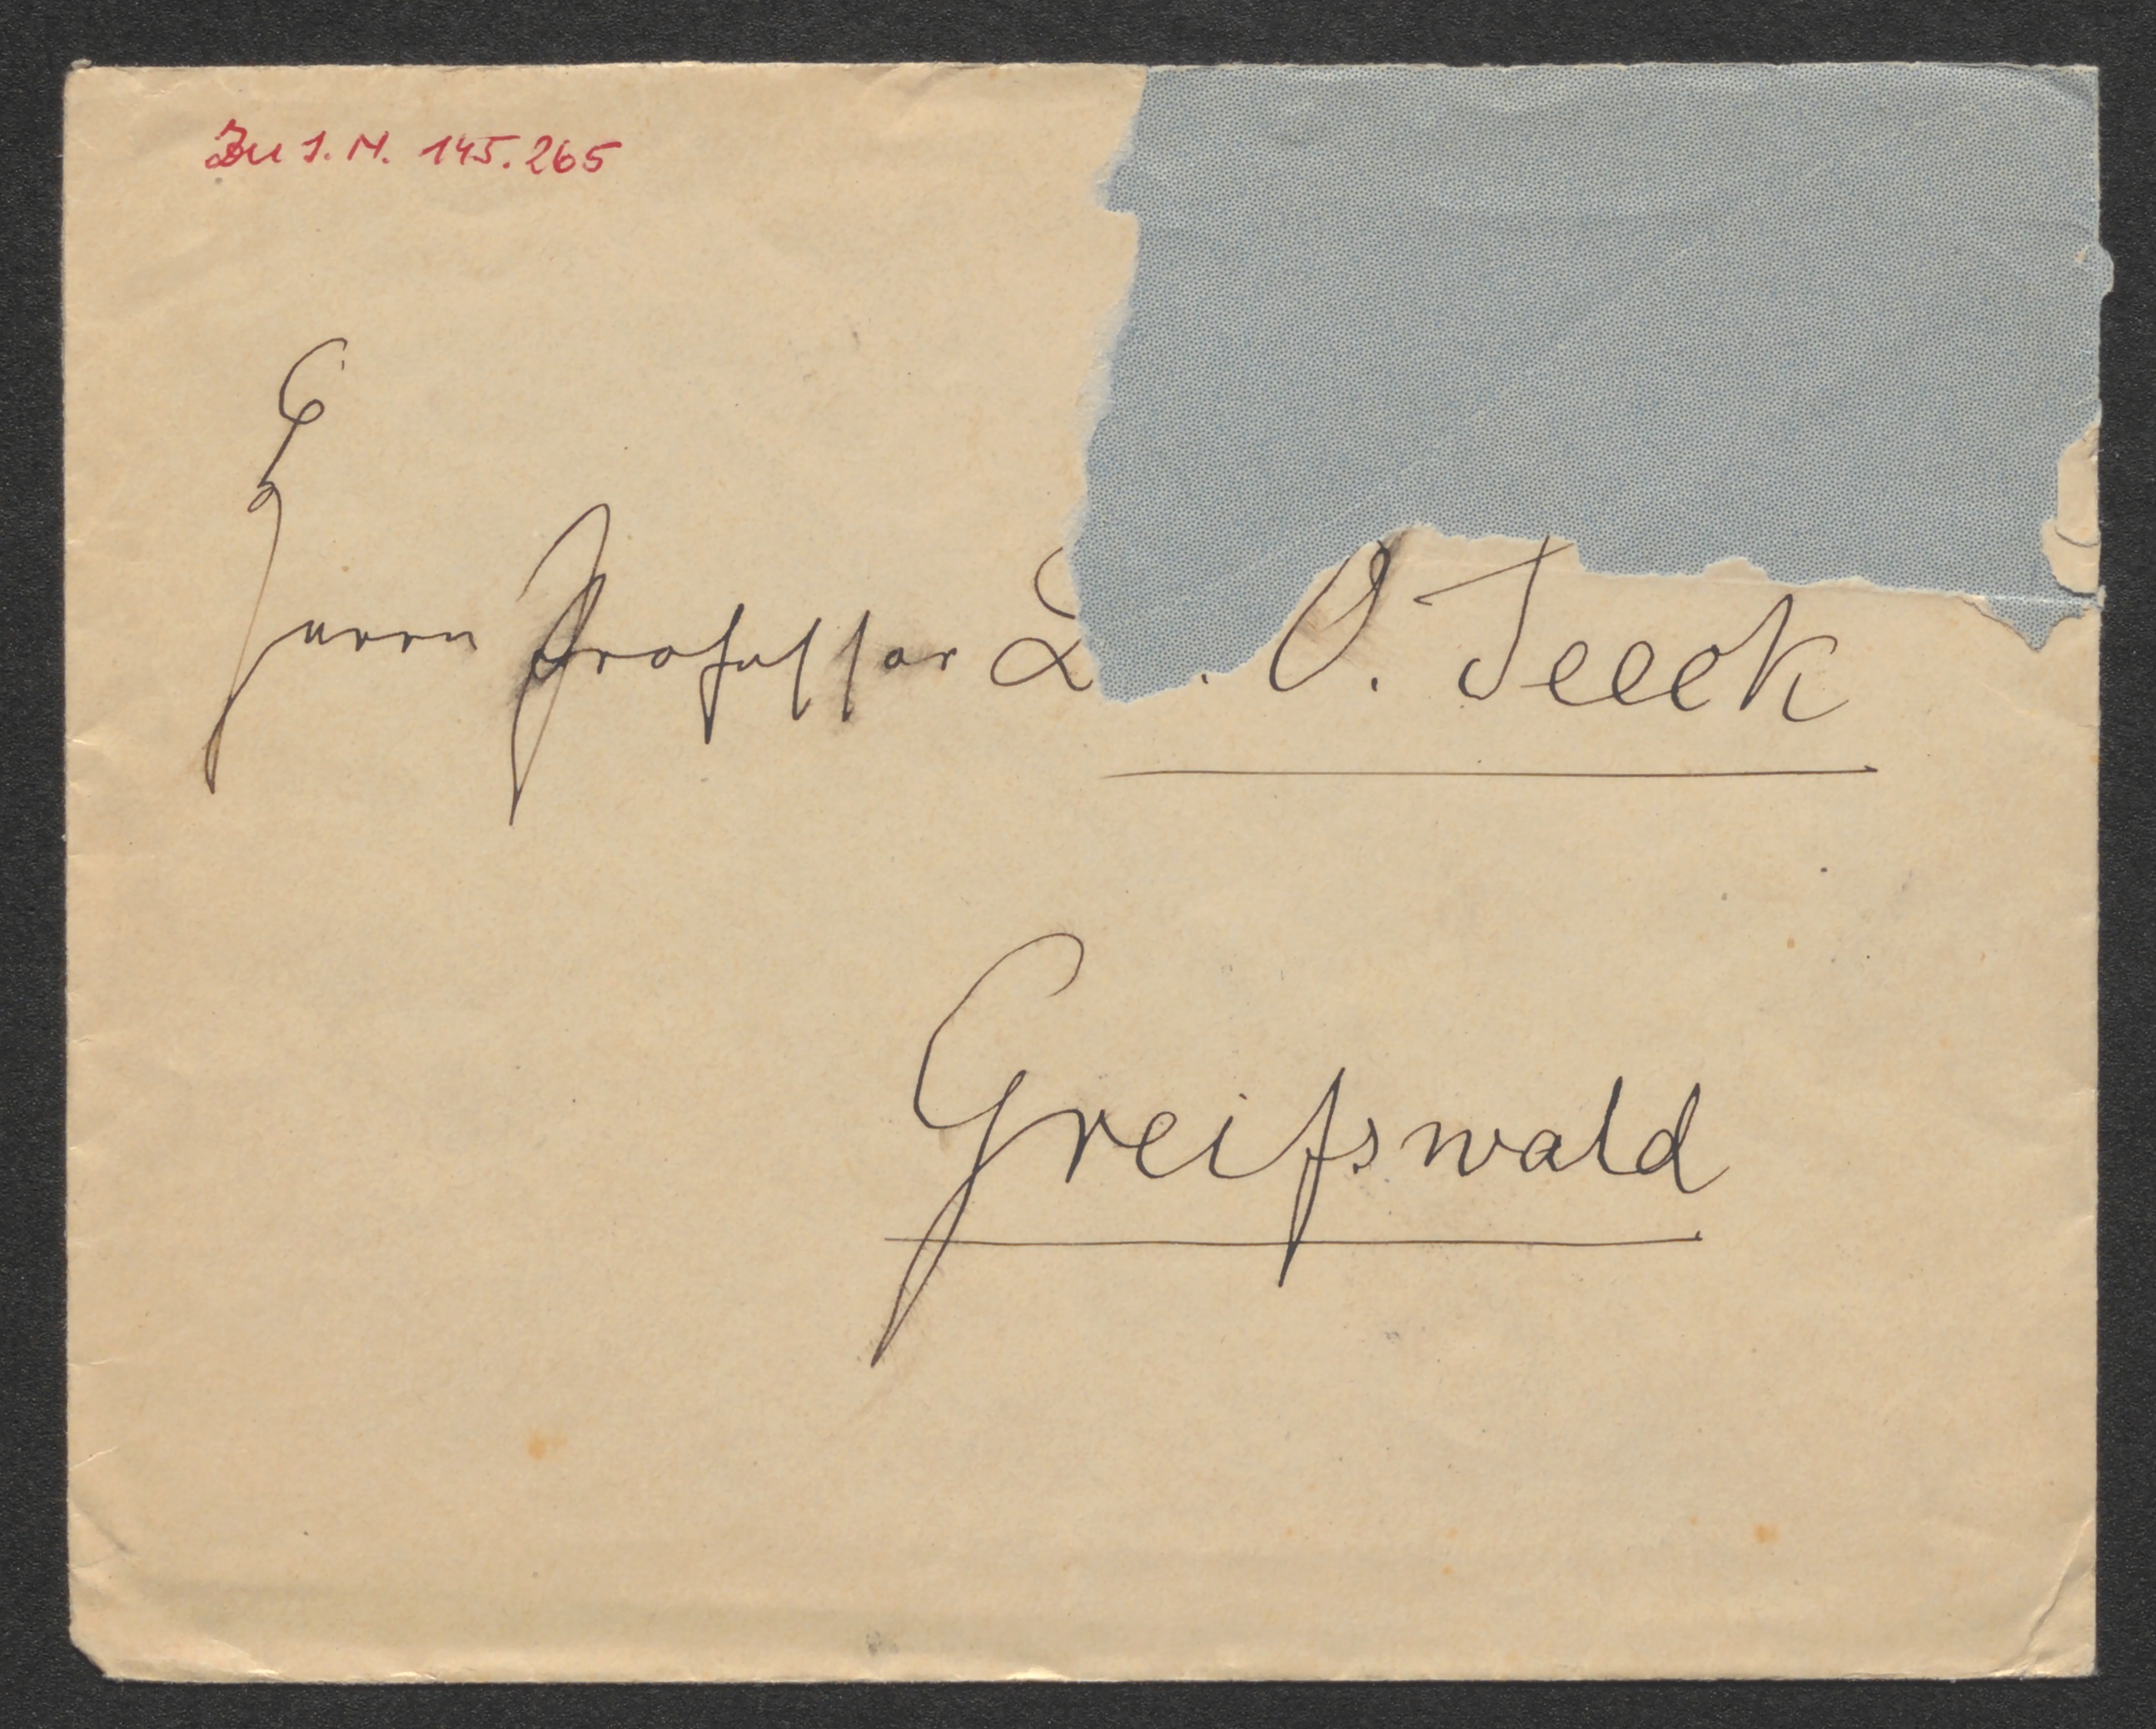 Zu I.N. 145.265
Herrn Professor D . O. Seeck
Greifswald